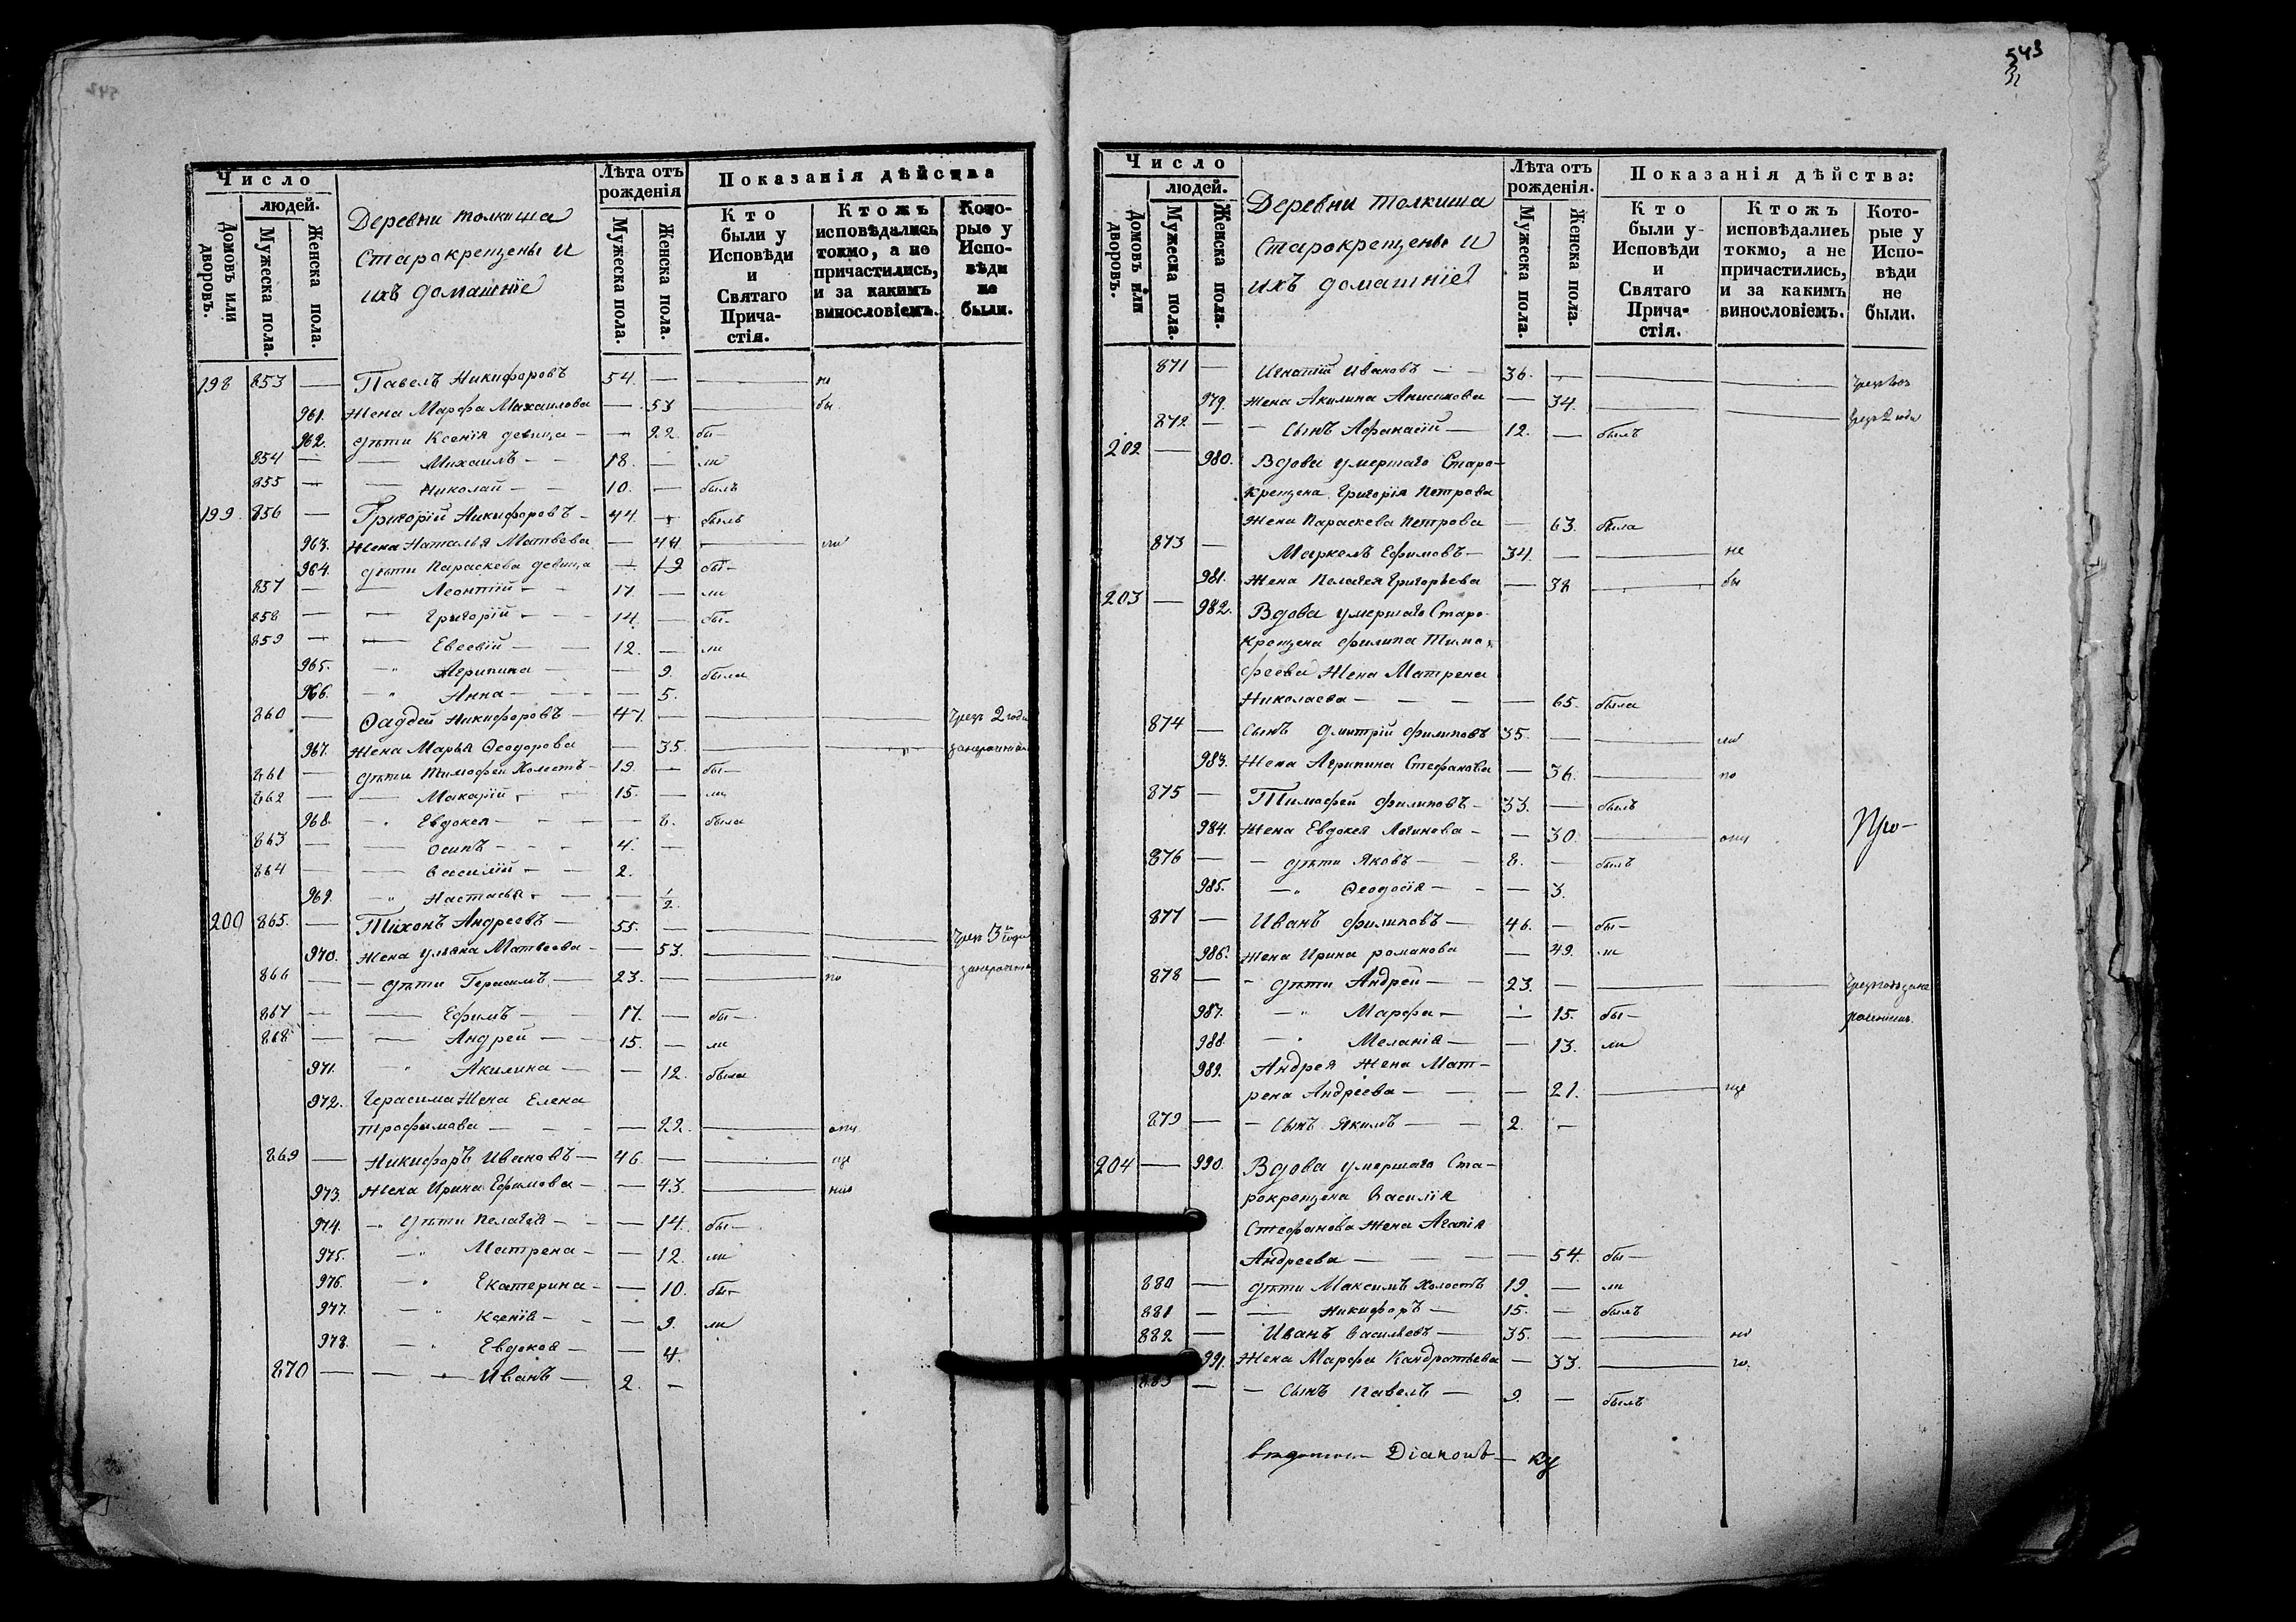 543
Число
людей.
Домовъ или дворовъ.
Мужеска пола.
Женска пола.
Деревни Толкиша
Старокрещены и
ихъ домашніе
Лѣта отъ рожденія
Мужеска пола.
Женска пола.
Показанія дѣйства
Кто были у Исповѣди и Святаго Прича-стія.
Ктожъ исповѣдались токмо, а не причастились, и за какимъ винословіемъ.
Кото-рые у Испо-вѣди не были.
198 853 — Павелъ Никифоровъ 54. — — не
961. Жена Марфа Михаилова — 53 — бы
962. дѣти Ксенія девица — — 22. бы—
854 — — Михаилъ — 18. — ли
855 — — Николай — 10. — былъ
199 856 — Григорій Никифоровъ — 44. — былъ
963. Жена Наталья Матвѣева — 44 —
964. дѣти Параскева девица — 19 бы—
857 — — Леонтій — 17. — ли
858 — — Григорій — 14. — бы—
859 — — Евсевій — 12. — ли
965. — Агрипина — — 9. была
966. — Анна — — 5.
860 — Фаддей Никифоровъ — 47. — — — 2 года
967. Жена Марья Феодорова — 35. — —
861 — дѣти Тимофей Холостъ — 19. — бы—
862 — — Макарій — 15. — ли
968. — Евдокея — — 8. была
863 — — Осипъ — 4. —
864 — — Василій — 2.
969. — Настасья — — ½
200 865. — Тихонъ Андреевъ — 55. — — — 3 года
970. Жена Ульяна Матвеева — — 53. — —
866 — — дѣти Герасимъ — 23. — — по
867 — — Ефимъ — 17. — бы—
868 — — Андрей — 15. — ли
971. — Акилина — — 12. была
972. Герасима Жена Елена
Трофимова — — 22. —
869 — Никифоръ Ивановъ — 46. — —
973. Жена Ирина Ефимова — — 43. —
974. — дѣти Пелагея — — 14. бы—
975. — Матрена — — 12. ли
976. — Екатерина — — 10. бы—
977. — Ксенія — — 9. ли
978. — Евдокея — — 4.
870 — — — Иванъ — 2. —
Число
людей.
Домовъ или дворовъ.
Мужеска пола.
Женска пола.
Деревни Толкиша
Старокрещены и
ихъ домашніе
Лѣта отъ рожденія.
Мужеска пола.
Женска пола.
Показанія дѣйства:
Кто были у Исповѣди и Святаго Прича-стія.
Ктожъ исповѣдались токмо, а не причастились, и за какимъ винословіемъ.
Кото-рые у Испо-вѣди не были.
871 — Игнатій Ивановъ — 36. — — —
979. Жена Акилина Анисимова — 34. — — 2 года
872 — — Сынъ Афанасій — 12. — былъ
202 — 980. Вдова умершаго Старо-
крещена Григорія Петрова
Жена Параскева Петрова — 63. была
873 — Маркелъ Ефимовъ — 34. — — не
981. Жена Пелагея Григорьева — 38 — бы
203 — 982. Вдова умершаго Старо-
крещена Филипа Тимо-
феева Жена Матрена
Николаева — — — 65. была
874 — Сынъ Дмитрій Филиповъ 35. — — ли
983. Жена Агрипина Стефанова — 36. — по
875 — Тимофей Филиповъ — 33. — былъ
984. Жена Евдокея Логинова — — 30. —
Про-
876 — — дѣти Яковъ — 8. — былъ
985. — Феодосія — — 3.
877 — Иванъ Филиповъ — 46. — бы—
986. Жена Ирина Романова — 49. ли
878 — — дѣти Андрей — 23. — — —
987. — Марфа — — 15. бы—
988. — Меланія — — 13. ли
989. Андрея Жена Мат-
рена Андреева — — 21. —
879 — — Сынъ Якимъ — 2. —
204 — 990. Вдова умершаго Ста-
рокрещена Василія
Стефанова Жена Агапія
Андреева — — — 54. бы—
880 — дѣти Максимъ Холостъ 19. — ли
881 — — Никифоръ — 15. — былъ
882 — Иванъ Васильевъ — 35. — —
991. Жена Марфа Кандратьева — 33. —
883 — — Сынъ Павелъ — 9. — былъ
Діаконъ — Ку